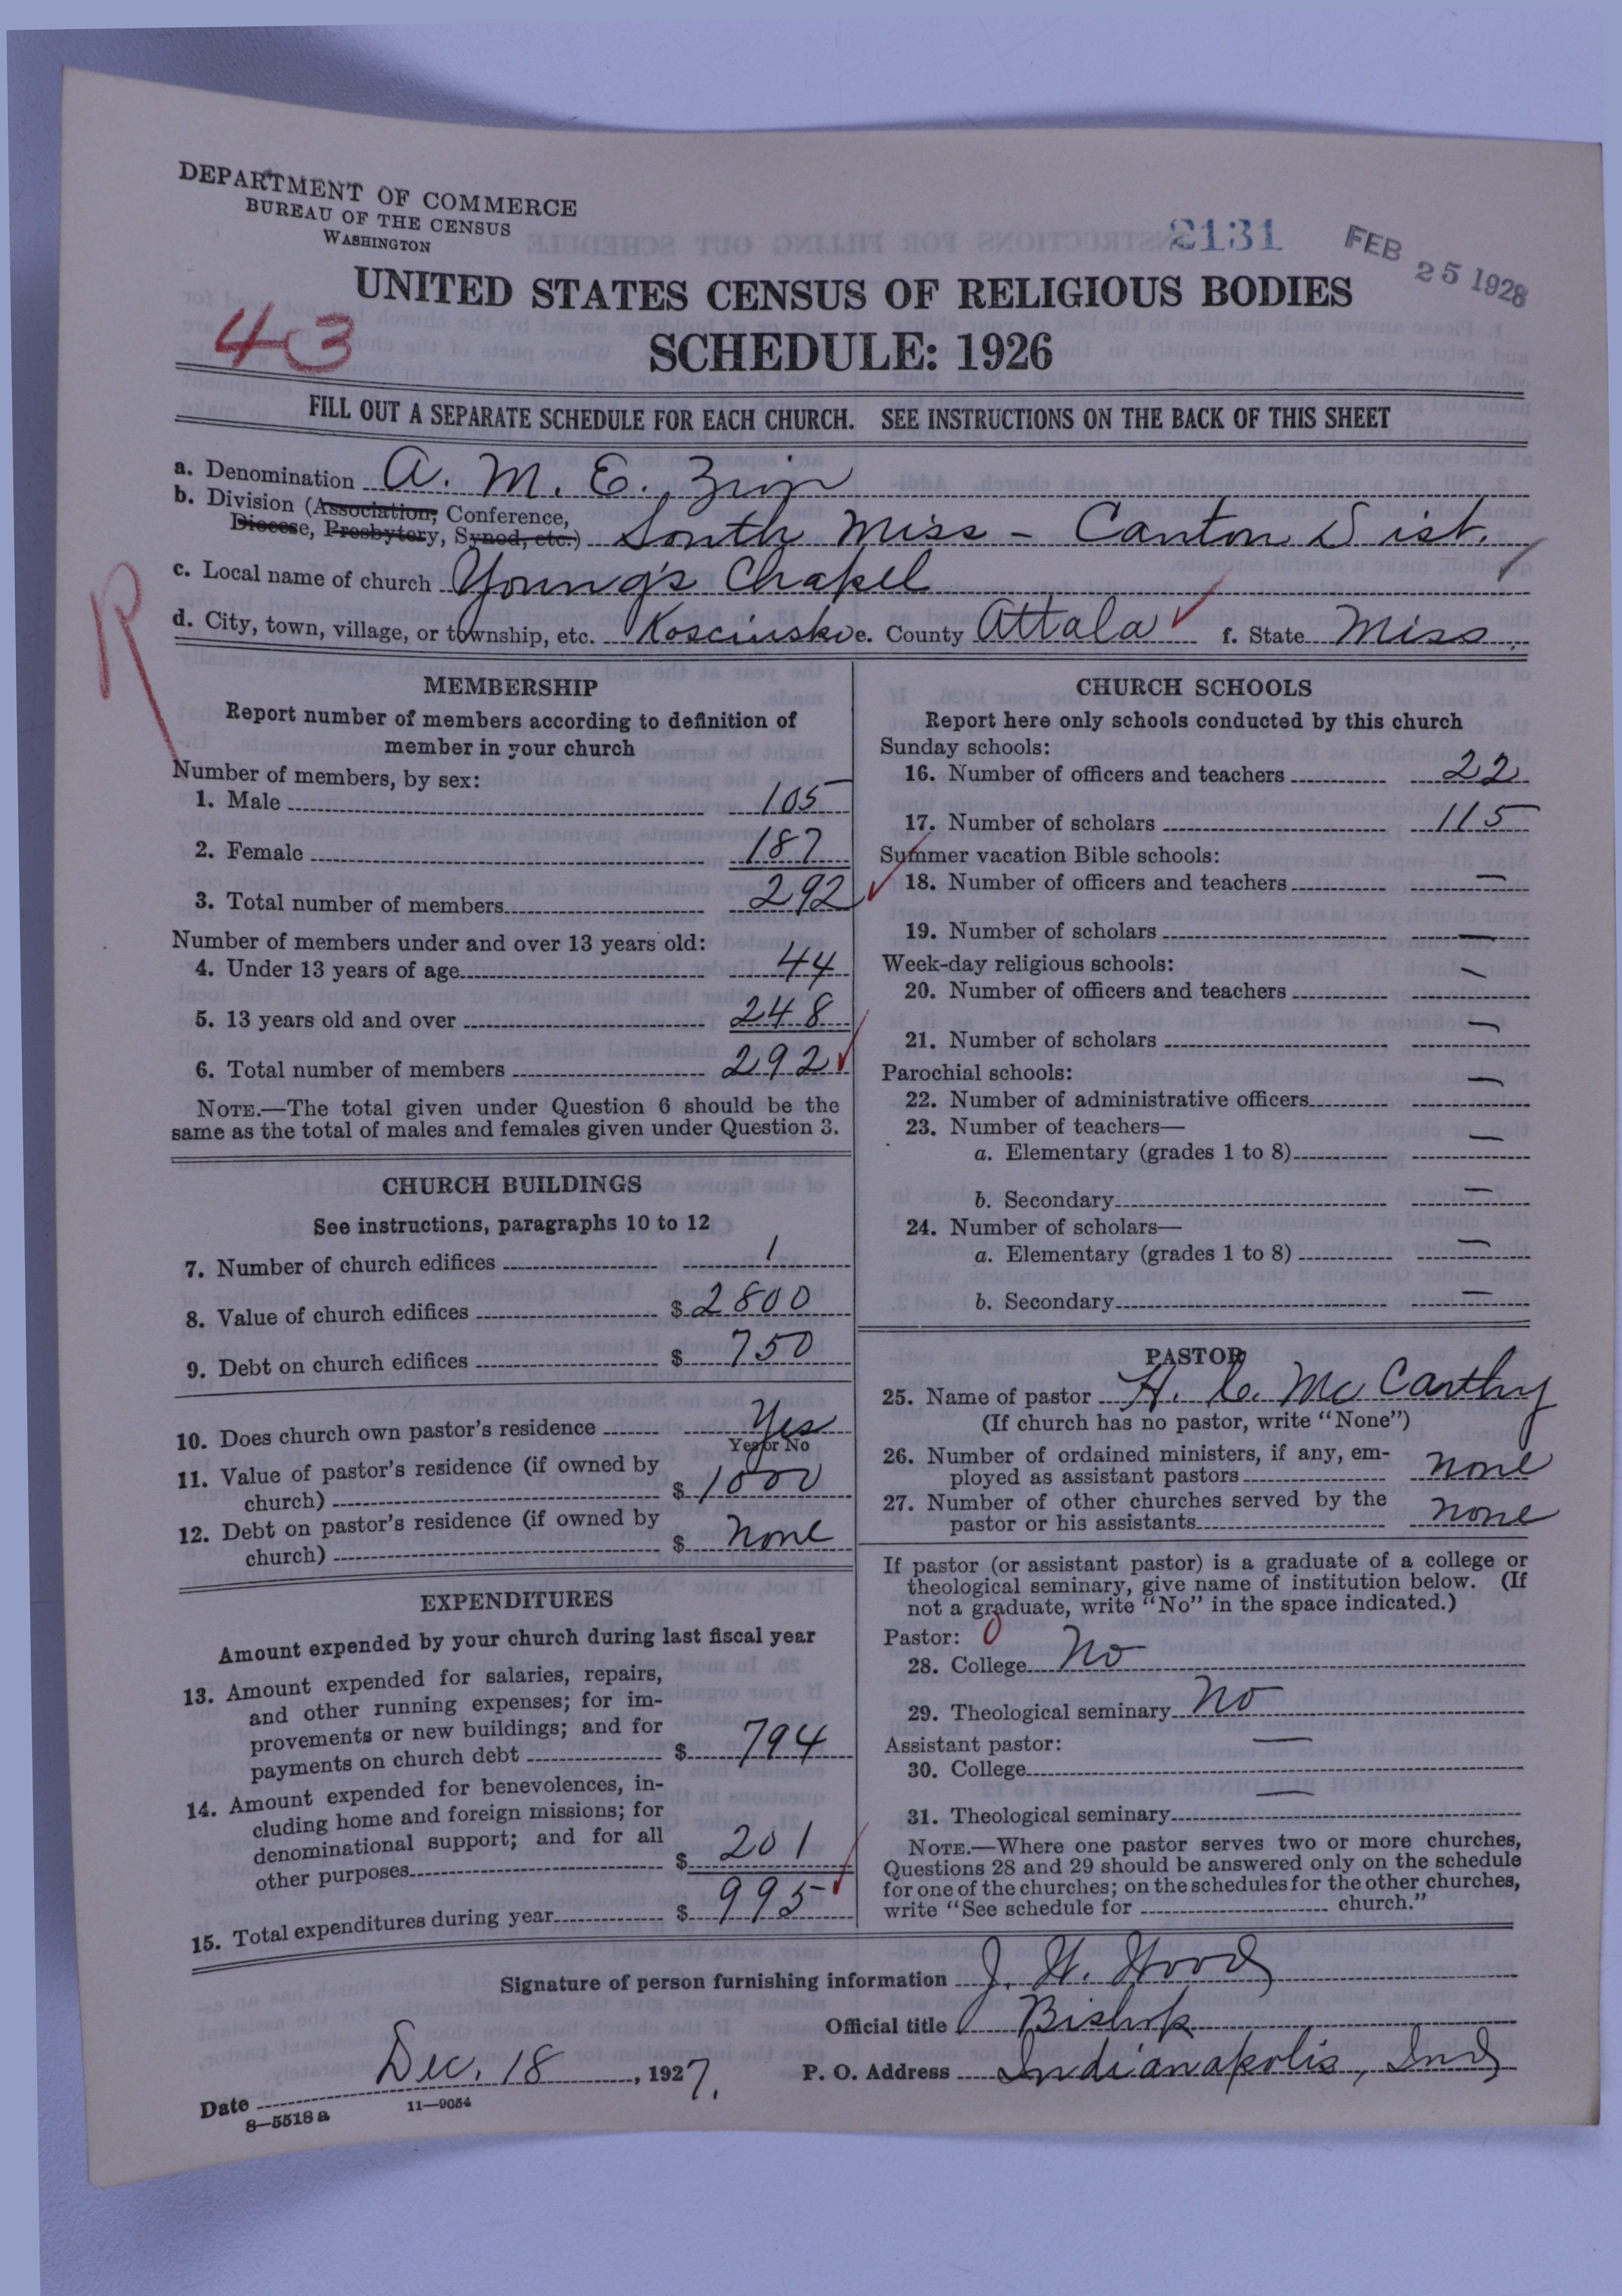 DEPARTMENT OF COMMERCE
BUREAU OF THE CENSUS
WASHINGTON
2131
FEB 25 1928
UNITED STATES CENSUS OF RELIGIOUS BODIES
SCHEDULE: 1926
43
FILL OUT A SEPARATE SCHEDULE FOR EACH CHURCH. SEE INSTRUCTIONS ON THE BACK OF THIS SHEET
a. Denomination A. M. E. Zion
b. Division (Association, Conference,
Diocese, Presbytery, Synod, etc.) South Miss - Canton Dist.
c. Local name of church Young's Chapel
d. City, town, village, or township, etc. Kosciusko e. County Attala f. State Miss.
R
MEMBERSHIP
Report number of members according to definition of
member in your church
Number of members, by sex:
1. Male 105
2. Female 187
3. Total number of members 292
Number of members under and over 13 years old:
4. Under 13 years of age 44
5. 13 years old and over 248
6. Total number of members 292
NOTE.—The total given under Question 6 should be the
same as the total of males and females given under Question 3.
CHURCH BUILDINGS
See instructions, paragraphs 10 to 12
7. Number of church edifices 1
8. Value of church edifices $ 2800
9. Debt on church edifices $ 750
10. Does church own pastor's residence Yes
Yes or No
11. Value of pastor's residence (if owned by
church) $ 1000
12. Debt on pastor's residence (if owned by
church) $ none
EXPENDITURES
Amount expended by your church during last fiscal year
13. Amount expended for salaries, repairs,
and other running expenses; for im-
provements or new buildings; and for
payments on church debt $ 794
14. Amount expended for benevolences, in-
cluding home and foreign missions; for
denominational support; and for all
other purposes $ 201
15. Total expenditures during year $ 995
CHURCH SCHOOLS
Report here only schools conducted by this church
Sunday schools:
16. Number of officers and teachers 22
17. Number of scholars 115
Summer vacation Bible schools:
18. Number of officers and teachers —
19. Number of scholars —
Week-day religious schools:
20. Number of officers and teachers —
21. Number of scholars —
Parochial schools:
22. Number of administrative officers —
23. Number of teachers—
a. Elementary (grades 1 to 8) —
b. Secondary —
24. Number of scholars—
a. Elementary (grades 1 to 8) —
b. Secondary —
PASTOR
25. Name of pastor H. C. McCarthy
(If church has no pastor, write "None")
26. Number of ordained ministers, if any, em-
ployed as assistant pastors none
27. Number of other churches served by the
pastor or his assistants none
If pastor (or assistant pastor) is a graduate of a college or
theological seminary, give name of institution below. (If
not a graduate, write "No" in the space indicated.)
Pastor: 0
28. College No
29. Theological seminary No
Assistant pastor:
30. College —
31. Theological seminary —
NOTE.—Where one pastor serves two or more churches,
Questions 28 and 29 should be answered only on the schedule
for one of the churches; on the schedules for the other churches,
write "See schedule for church."
Signature of person furnishing information J. W. Wood
Official title Bishop
Date Dec. 18, 1927. P. O. Address Indianapolis, Ind
8—5518 a 11—9054